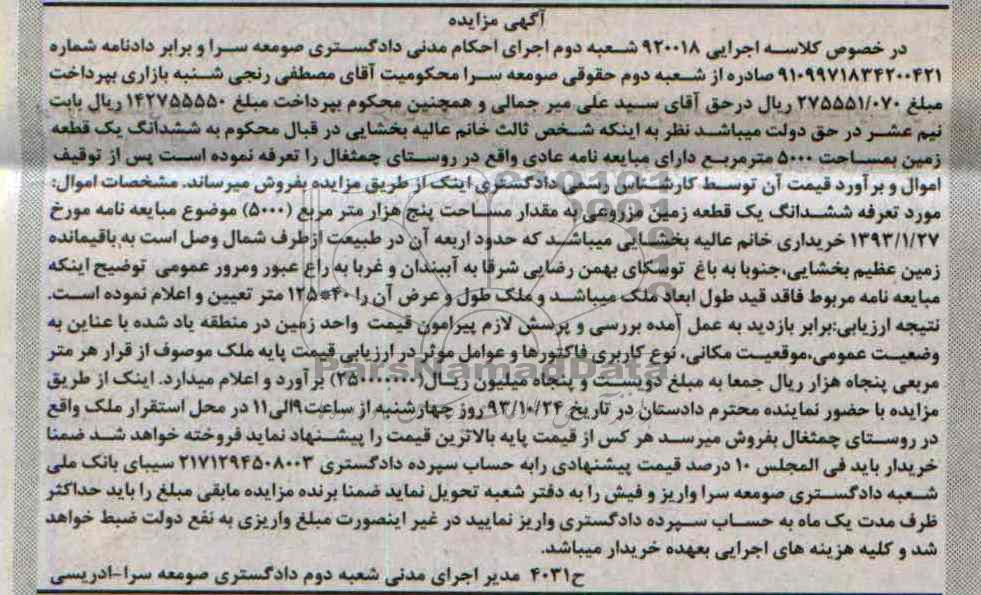 آگهی مزایده
در خصوص کلاسه اجرایی ۹۲۰۰۱۸ شعبه دوم اجرای احکام مدنی دادگستری صومعه سرا و برابر دادنامه شماره
۹۱۰۹۹۷۱۸۳۴۲۰۰۴۲۱ صادره از شعبه دوم حقوقی صومعه سرا محکومیت آقای مصطفی رنجی شنبه بازاری بپرداخت
مبلغ ۲۷۵۵۵۱/۰۷۰ ریال درحق آقای سید علی میر جمالی و همچنین محکوم بپرداخت مبلغ ۱۴۲۷۵۵۵۵۰ ریال بابت
نیم عشر در حق دولت میباشد نظر به اینکه شخص ثالث خانم عالیه بخشایی در قبال محکوم به ششدانگ یک قطعه
زمین بمساحت ۵۰۰۰ مترمربع دارای مبایعه نامه عادی واقع در روستای چمثغال را تعرفه نموده است پس از توقیف
اموال و برآورد قیمت آن توسط کارشناس رسمی دادگستری اینک از طریق مزایده بفروش میرساند. مشخصات اموال:
مورد تعرفه ششدانگ یک قطعه زمین مزروعی به مقدار مساحت پنج هزار متر مربع (۵۰۰۰) موضوع مبایعه نامه مورخ
۱۳۹۳/۱/۲۷ خریداری خانم عالیه بخشایی میباشد که حدود اربعه آن در طبیعت ازطرف شمال وصل است به باقیمانده
زمین عظیم بخشایی،جنوبا به باغ توسکای بهمن رضایی شرقا به آببندان و غربا به راع عبور ومرور عمومی توضیح اینکه
مبایعه نامه مربوط فاقد قید طول ابعاد ملک میباشد و ملک طول و عرض آن را ۴۰*۱۲۵ متر تعیین و اعلام نموده است.
نتیجه ارزیابی:برابر بازدید به عمل آمده بررسی و پرسش لازم پیرامون قیمت واحد زمین در منطقه یاد شده با عناین به
وضعیت عمومی،موقعیت مکانی، نوع کاربری فاکتورها و عوامل موثر در ارزیابی قیمت پایه ملک موصوف از قرار هر متر
مربعی پنجاه هزار ریال جمعا به مبلغ دویست و پنجاه میلیون ریال(۲۵۰۰۰۰۰۰۰) برآورد و اعلام میدارد. اینک از طریق
مزایده با حضور نماینده محترم دادستان در تاریخ ۹۳/۱۰/۲۴ روز چهارشنبه از ساعت ۹الی۱۱ در محل استقرار ملک واقع
در روستای چمثغال بفروش میرسد هر کس از قیمت پایه بالاترین قیمت را پیشنهاد نماید فروخته خواهد شد ضمنا
خریدار باید فی المجلس ۱۰ درصد قیمت پیشنهادی رابه حساب سپرده دادگستری ۲۱۷۱۲۹۴۵۰۸۰۰۳ سیبای بانک ملی
شعبه دادگستری صومعه سرا واریز و فیش را به دفتر شعبه تحویل نماید ضمنا برنده مزایده مابقی مبلغ را باید حداکثر
ظرف مدت یک ماه به حساب سپرده دادگستری واریز نمایید در غیر اینصورت مبلغ واریزی به نفع دولت ضبط خواهد
شد و کلیه هزینه های اجرایی بعهده خریدار میباشد.
ح۴۰۳۱ مدیر اجرای مدنی شعبه دوم دادگستری صومعه سرا-ادریسی
ParsNamadData